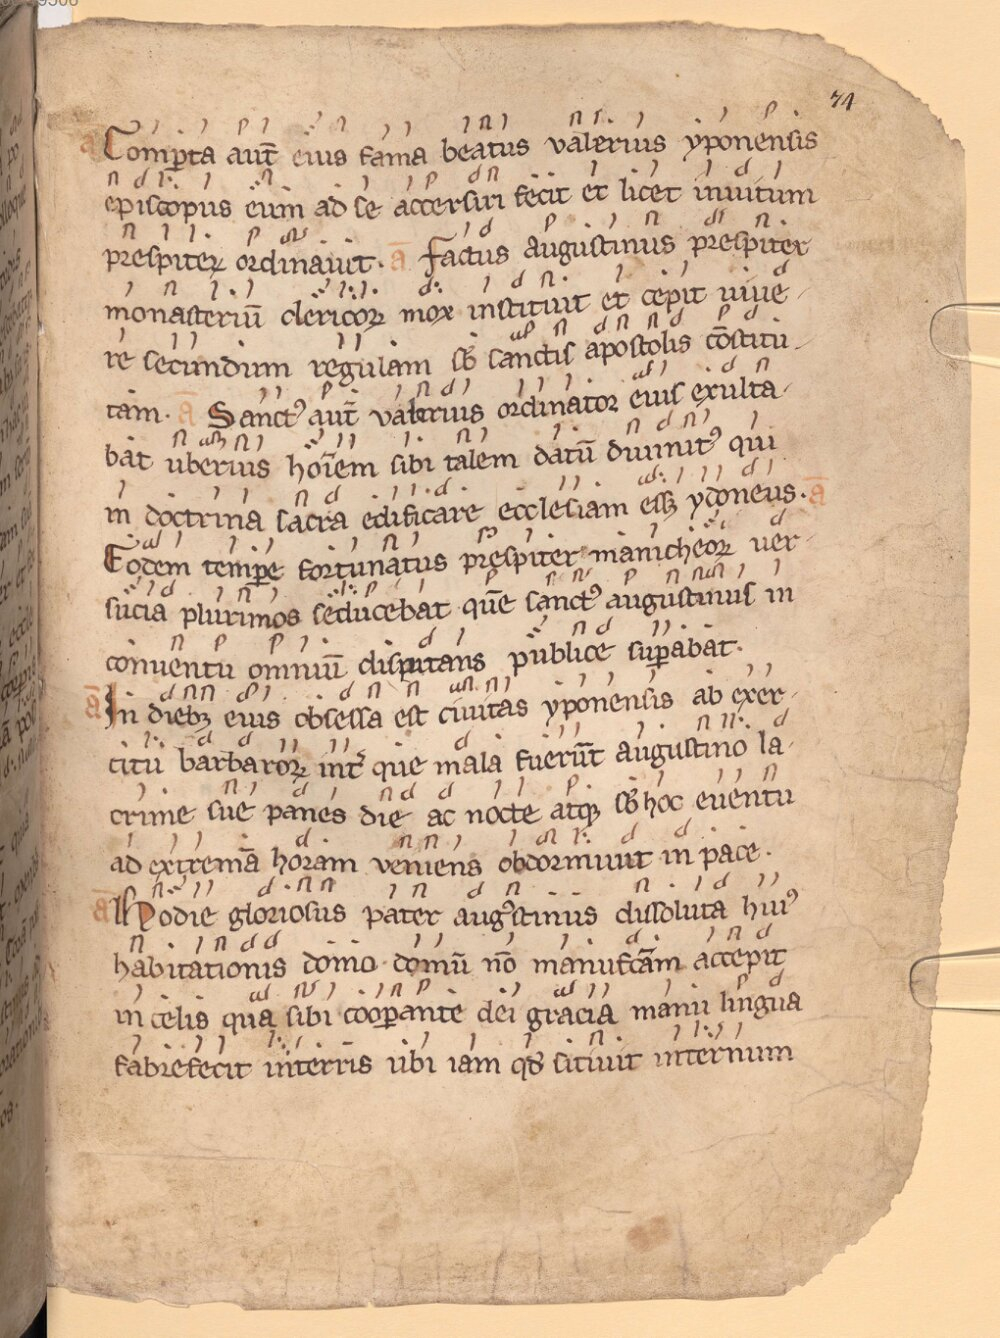 74
a Comꝑta aut̄ eius fama beatus valerius yponensis
episcopus eum ad se accersiri fecit et licet inuitum
prespiteꝝ ordinauit. a Factus augustinus prespiter
monasteriū clericoꝝ mox instituit et cepit uiue
re secundum regulam sb̄ sanctis apostolis cōstitu
tam. a Sanctꝰ aut̄ valerius ordinator eius exulta
bat uberius hoīem sibi talem datū diuinitꝰ qui
in doctrina sacra edificare ecclesiam essꝫ ydoneus. a
Eodem temꝑe fortunatus prespiter manicheoꝝ uer
sucia plurimos seducebat quē sanctꝰ augustinus in
conuentu omniū disputans publice suꝑabat.
a In diebꝫ eius obsessa est ciuitas yponensis ab exer
citu barbaroꝝ int̾ que mala fuerūt augustino la
crime sue panes die ac nocte atqꝫ sb̄ hoc euentu
ad extremā horam veniens obdormiuit in pace.
a Hodie gloriosus pater augꝰstinus dissoluta huiꝰ
habitationis domo domū nō manufcām accepit
in celis qua sibi cooꝑante dei gracia manu lingua
fabrefecit in terris ubi iam qd̄ sitiuit internum